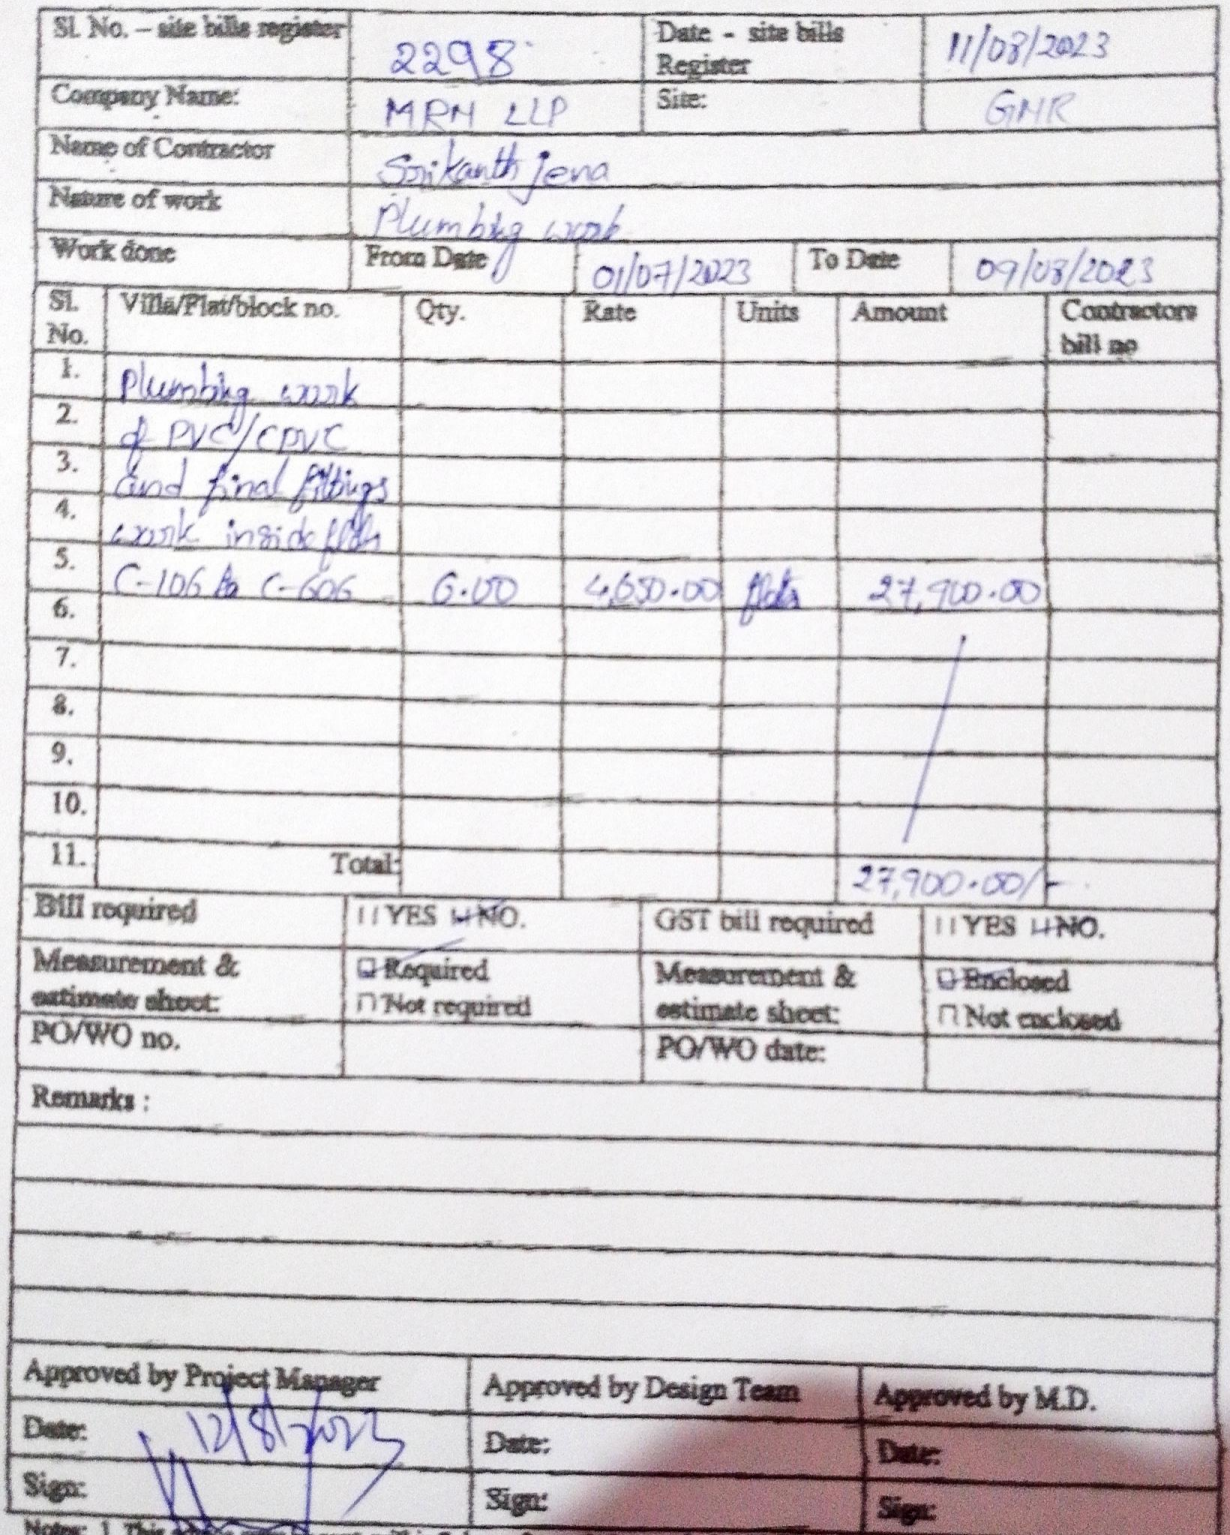 Sl. No. – site bills register 2298 Date - site bills Register 11/08/2023
Company Name: MRM LLP Site: GMR
Name of Contractor Srikanth Jena
Nature of work Plumbing work
Work done From Date 01/07/2023 To Date 09/08/2023
Sl. No. Villa/Flat/block no. Qty. Rate Units Amount Contractors bill no
1. Plumbing work
2. of PVC/CPVC
3. and final fittings
4. work inside flats
5. C-106 to C-606 6.00 4,650.00 flats 27,900.00
6.
7.
8.
9.
10.
11. Total: 27,900.00/-
Bill required YES NO. GST bill required YES NO.
Measurement & estimate sheet: Required Measurement & estimate sheet: Enclosed
Not required Not enclosed
PO/WO no. PO/WO date:
Remarks :
Approved by Project Manager Approved by Design Team Approved by M.D.
Date: 12/8/2023 Date: Date:
Sign: Sign: Sign:
Notes: 1. This